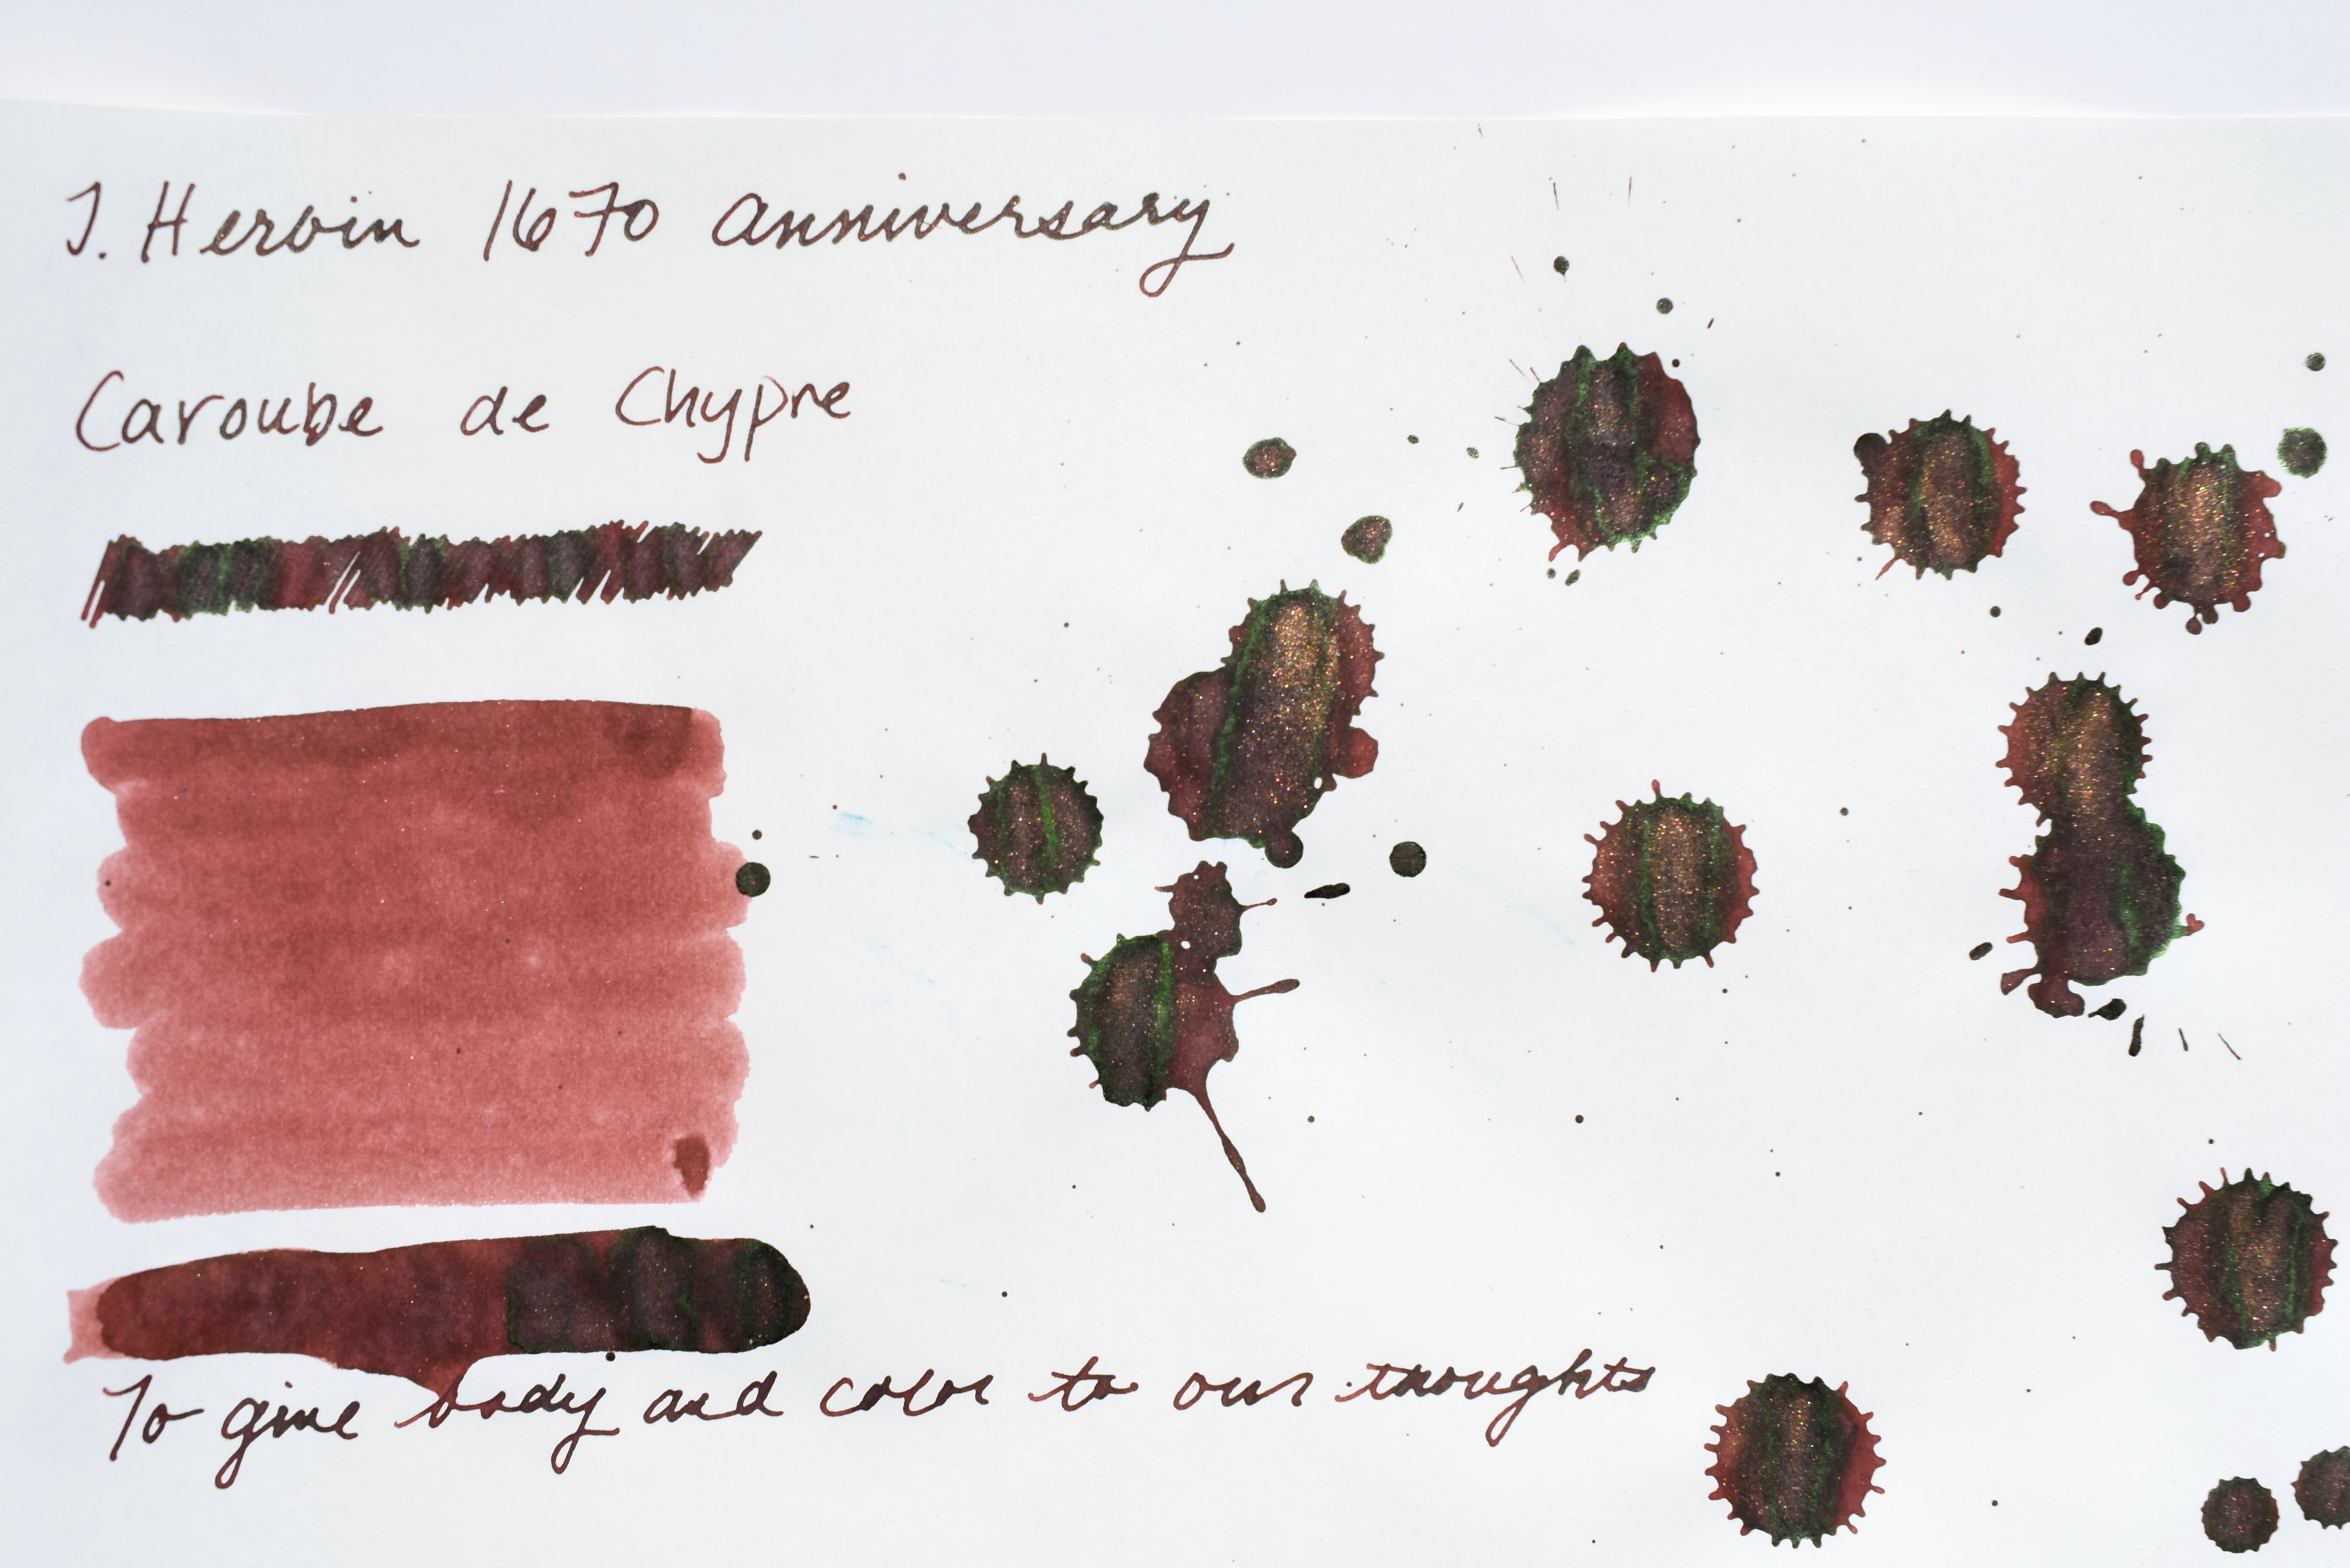 J. Herbin 1670 Anniversary
Caroube de Chypre
To give body and color to our thoughts